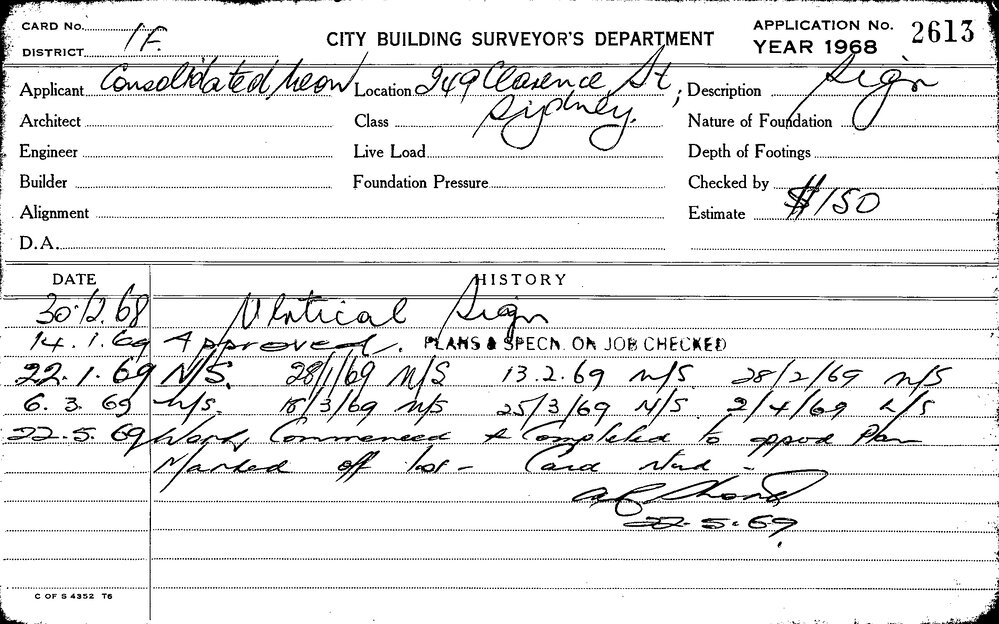 CARD No.
DISTRICT 1F.
CITY BUILDING SURVEYOR'S DEPARTMENT
APPLICATION No. 2613
YEAR 1968
Applicant Consolidated Neon Location 249 Clarence St, Sydney. ; Description Sign
Architect Class Nature of Foundation
Engineer Live Load Depth of Footings
Builder Foundation Pressure Checked by
Alignment Estimate $150
D.A.
DATE HISTORY
30.12.68 Vertical Sign
14.1.69 Approved. PLANS & SPECN. ON JOB CHECKED
22.1.69 N/S. 28/1/69 N/S 13.2.69 N/S. 28/2/69 N/S
6.3.69 N/S. 18/3/69 N/S 25/3/69 N/S. 2/4/69 N/S
22.5.69 Work Commenced & Completed to approd Plan
Marked off list - Card
22.5.69
C OF S 4352 T6